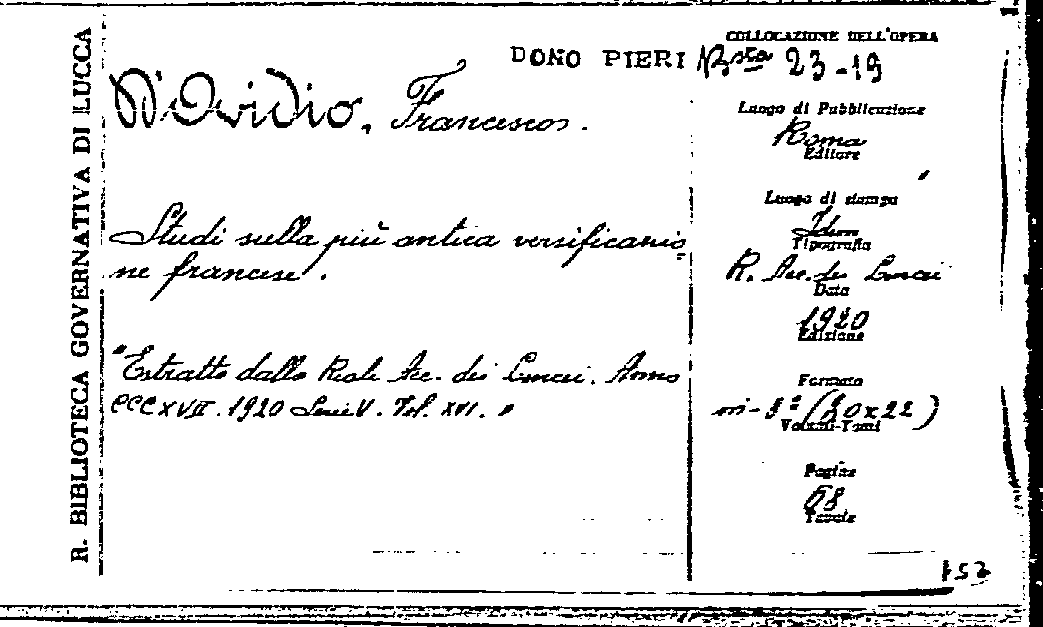 R. BIBLIOTECA GOVERNATIVA DI LUCCA
DONO PIERI
D'Ovidio, Francesco.
Studi sulla più antica versificazio=
ne francese.
"Estratto dalla Reale Acc. dei Lincei. Anno
CCCXVII. 1920 Serie V. Vol. XVI."
COLLOCAZIONE DELL'OPERA
Bsta 23-19
Luogo di Pubblicazione
Roma
Editore
"
Luogo di stampa
Idem
Tipografia
R. Acc. dei Lincei
Data
1920
Edizione
Formato
in-8° (30x22)
Volumi-Tomi
Pagine
68
Tavole
152